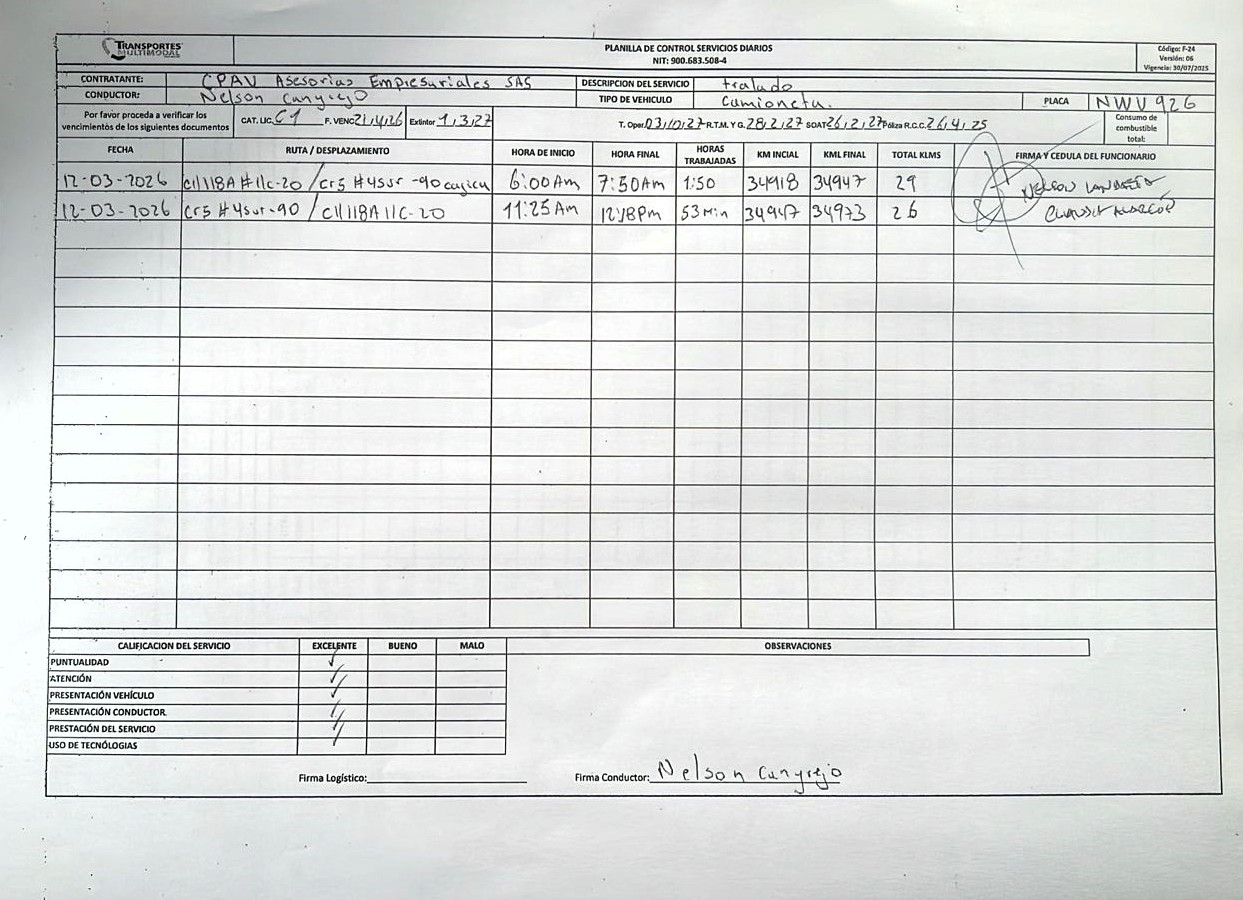 TRANSPORTES MULTIMODAL
PLANILLA DE CONTROL SERVICIOS DIARIOS
NIT: 900.683.508-4
Código: F-24
Versión: 06
Vigencia: 30/07/2025
CONTRATANTE: CPAV Asesorias Empresariales SAS DESCRIPCION DEL SERVICIO tralado
CONDUCTOR: Nelson Cangrejo TIPO DE VEHICULO Camioneta. PLACA NWV 926
Por favor proceda a verificar los vencimientos de los siguientes documentos CAT. LIC. C1 F. VENC 21,4,26 Extintor 1,3,27 T. Oper. 03,10,27 R.T.M. Y G. 28,2,27 SOAT 26,2,27 Póliza R.C.C. 26,4,25 Consumo de combustible total:
FECHA RUTA / DESPLAZAMIENTO HORA DE INICIO HORA FINAL HORAS TRABAJADAS KM INCIAL KML FINAL TOTAL KLMS FIRMA Y CEDULA DEL FUNCIONARIO
12-03-2026 Cll 118A # 11c-20 / Cr5 # 4sur-90 cajica 6:00 Am 7:50 Am 1:50 34918 34947 29 NELSON
12-03-2026 Cr5 # 4sur-90 / Cll 118A 11C-20 11:25 Am 12:18 Pm 53 Min 34947 34973 26
CALIFICACION DEL SERVICIO EXCELENTE BUENO MALO OBSERVACIONES
PUNTUALIDAD ✓
ATENCIÓN ✓
PRESENTACIÓN VEHÍCULO ✓
PRESENTACIÓN CONDUCTOR ✓
PRESTACIÓN DEL SERVICIO ✓
USO DE TECNÓLOGIAS ✓
Firma Logístico: Firma Conductor: Nelson Cangrejo